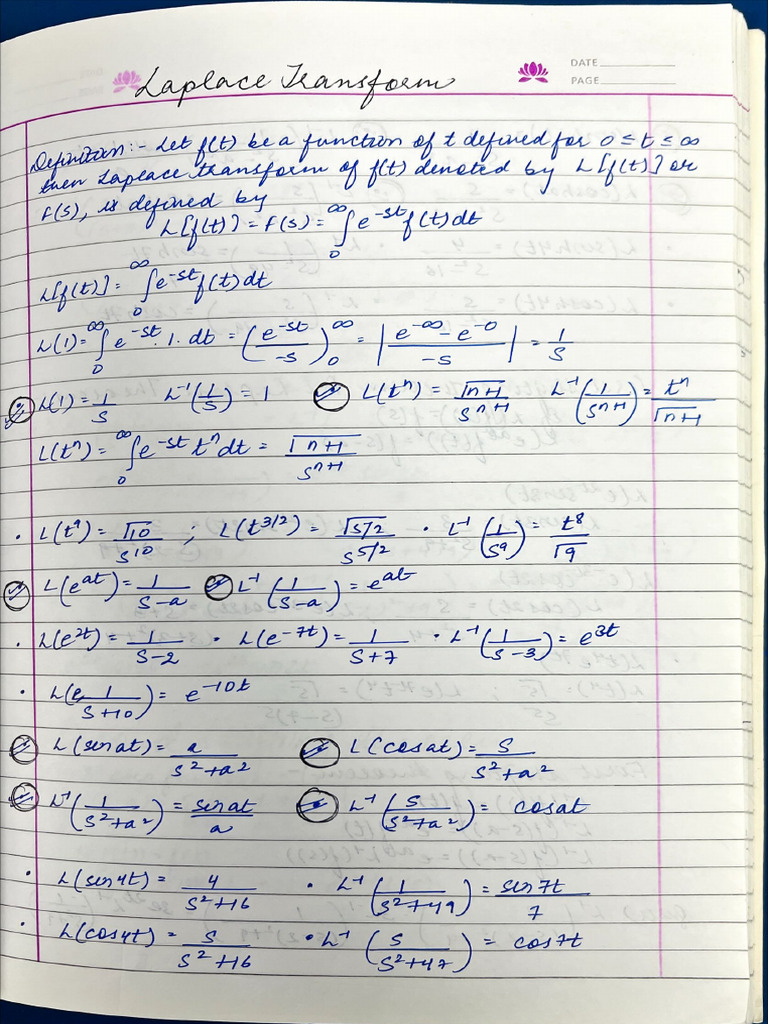 Laplace Transform
DATE
PAGE
Definition:- Let f(t) be a function of t defined for 0 ≤ t ≤ ∞
then Laplace transform of f(t) denoted by L[f(t)] or
F(s), is defined by
L[f(t)] = F(s) = ∫₀^∞ e^-st f(t) dt
L[f(t)] = ∫₀^∞ e^-st f(t) dt
L(1) = ∫₀^∞ e^-st . 1. dt = (e^-st/-s)₀^∞ = |e^-∞ - e^-0/-s| = 1/s
L(1) = 1/s L⁻¹(1/s) = 1 L(tⁿ) = Γn+1/s^n+1 L⁻¹(1/s^n+1) = tⁿ/Γn+1
L(tⁿ) = ∫₀^∞ e^-st tⁿ dt = Γn+1/s^n+1
• L(t⁹) = Γ10/s¹⁰ ; L(t^3/2) = Γ5/2/s^5/2 • L⁻¹(1/s⁹) = t⁸/Γ9
L(e^at) = 1/s-a L⁻¹(1/s-a) = e^at
• L(e^2t) = 1/s-2 • L(e^-7t) = 1/s+7 • L⁻¹(1/s-3) = e^3t
• L(1/s+10) = e^-10t
L(sin at) = a/s²+a² L(cos at) = s/s²+a²
L⁻¹(1/s²+a²) = sin at/a L⁻¹(s/s²+a²) = cos at
• L(sin 4t) = 4/s²+16 • L⁻¹(1/s²+49) = sin 7t/7
• L(cos 4t) = s/s²+16 • L⁻¹(s/s²+47) = cos 7t